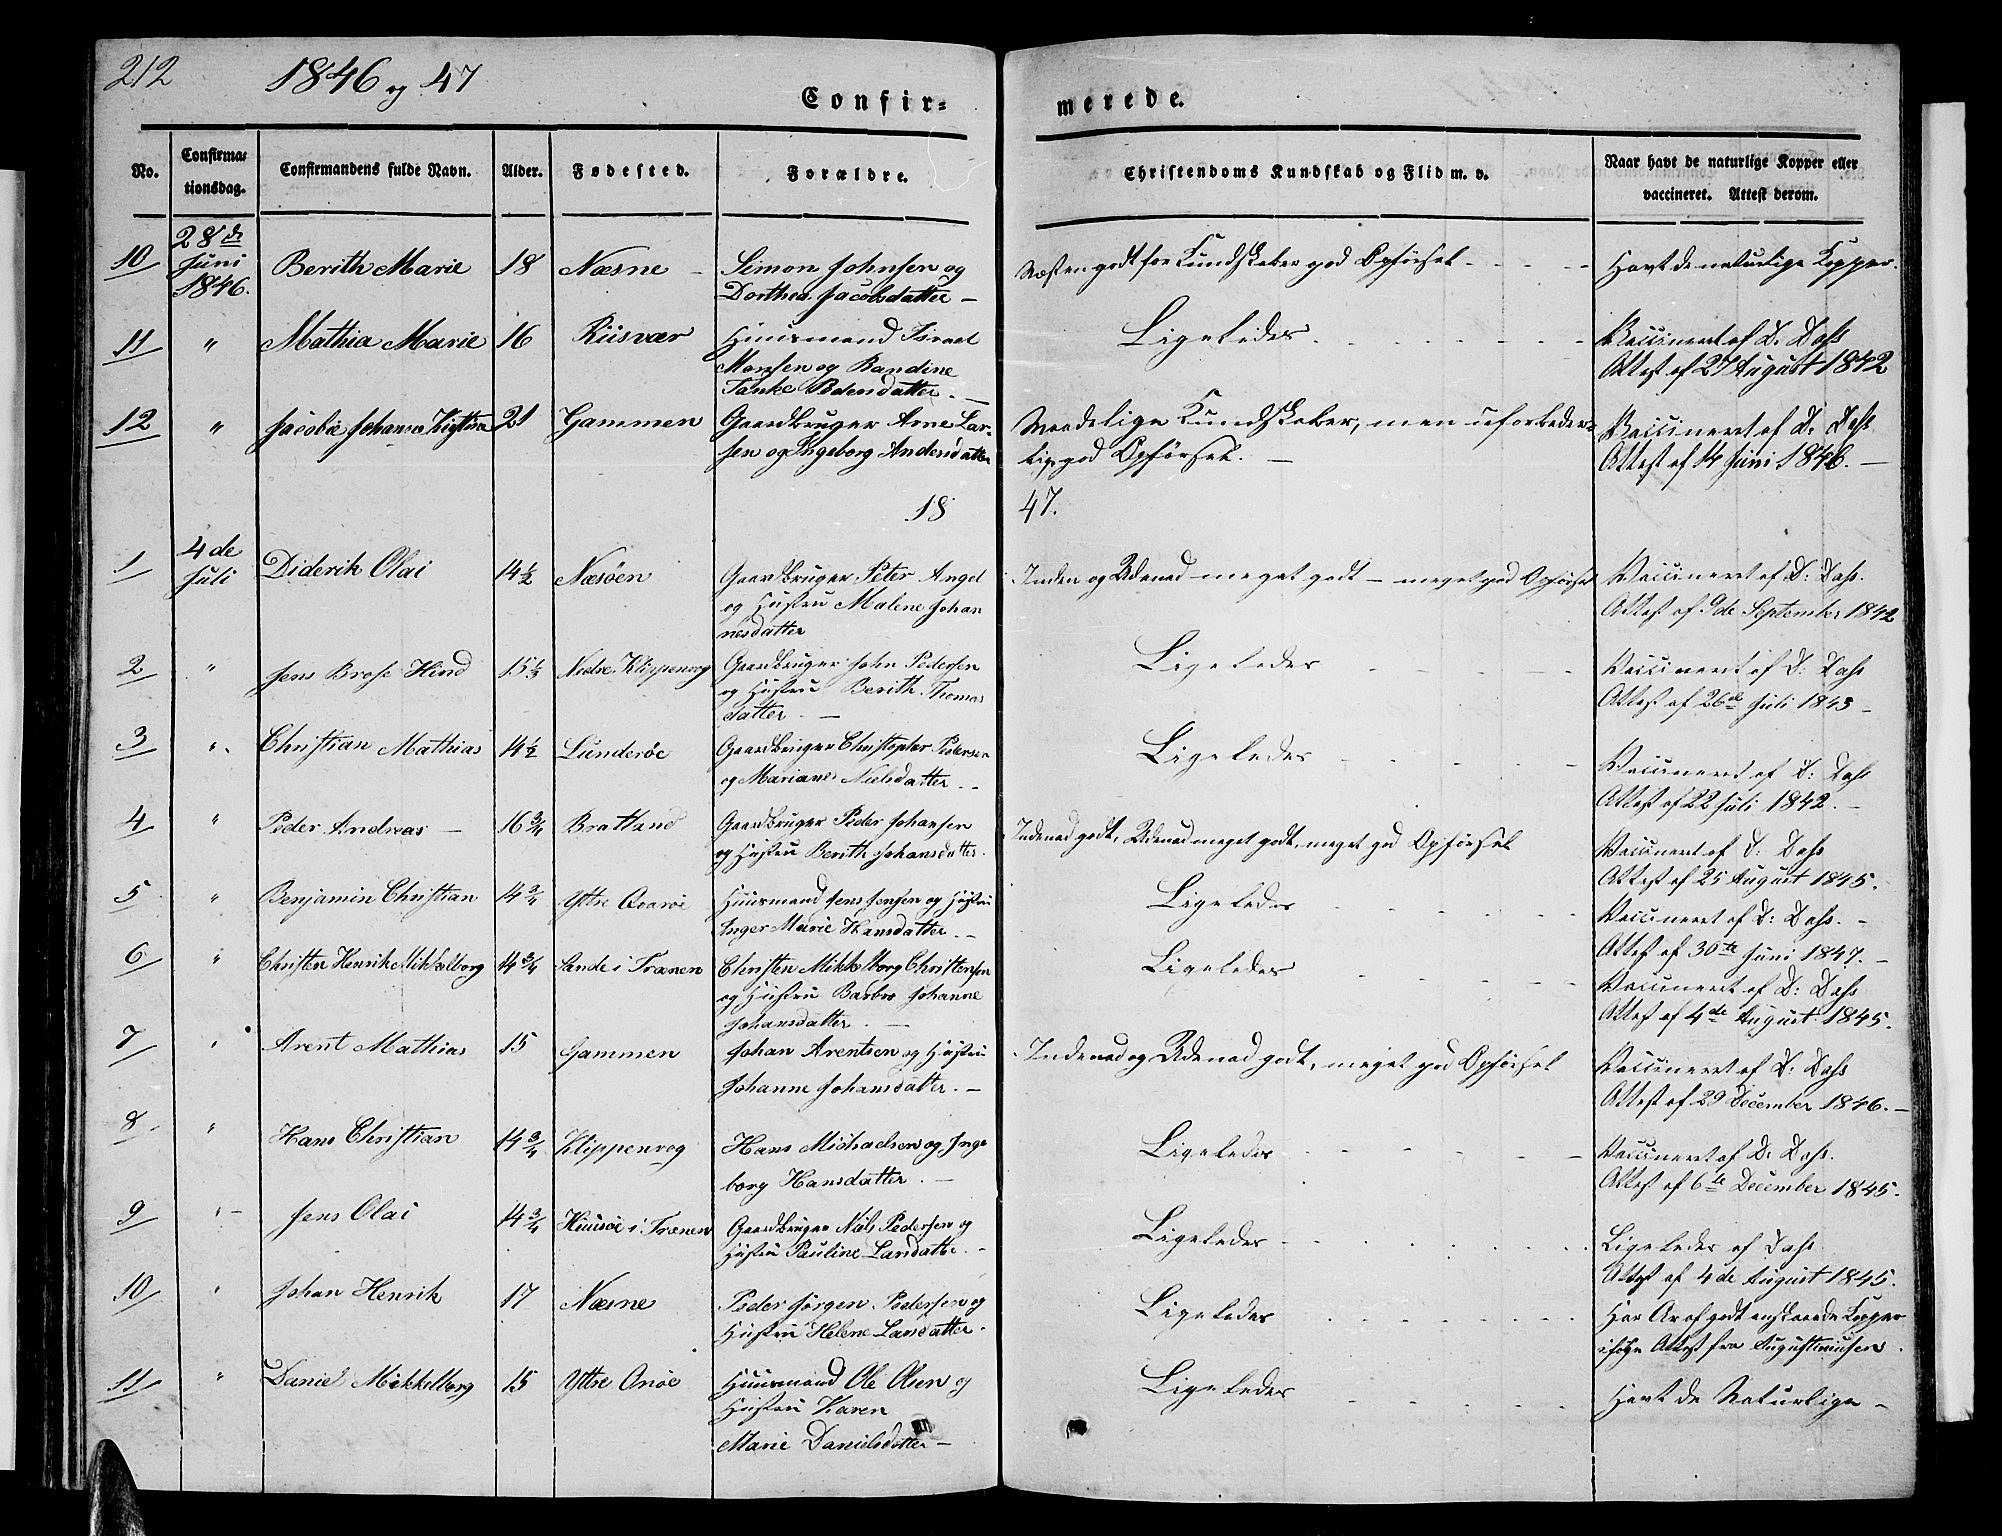 212
1846 og 47
Confir=
merede.
No.
Confirma=
tionsdag.
Confirmandens fulde Navn.
Alder.
Fødested.
Forældre.
Christendoms Kundskab og Flid m. v.
Naar havt de naturlige Kopper eller
vaccineret. Attest derom.
10 28de Juni 1846. Berith Marie 18 Næsne – Simon Johnsen og
Dorthea Jacobsdatter – Næsten godt for Kundskaber god Opførsel Havt de naturlige Kopper.
11 " Mathia Marie 16 Riisvær Huusmand Israel
Monsen og Randine
Tanke Pedersdatter. – Ligeledes Vaccineret af D. Dass
Attest af 27 August 1842
12 " Jacobæ Johanna 21 Gammen Gaardbruger Arne Lar=
sen og Ingeborg Andersdatter Maadelige Kundskaber, men uforbeder=
lig god Opførsel. – Vaccineret af D. Dass
Attest af 14 Juni 1846. –
18 47.
1 4de Juli Diderik Olai 14½ Næsöen Gaardbruger Peter Angel
og Hustru Malene Johan
nesdatter Inden og Udenad meget godt – meget god Opførsel Vaccineret af D: Dass.
Attest af 9de September 1842
2 " Jens Brose Hind 15½ Nedre Klippenvog Gaardbruger John Pedersen
og Hustru Berith Thomas
datter. – Ligeledes Vaccineret af D: Dass
Attest af 26de Juli 1843 –
3 " Christian Mathias 14½ Lunderöe Gaardbruger Christopher Pedersen
og Mariane Nielsdatter. – Ligeledes Vaccineret af D: Dass
Attest af 22 Juli 1842. –
4 " Peder Andreas – 16¾ Brattland Gaardbruger Peder Johansen
og Hustru Berith Johansdatter. Indenad godt, Udenad meget godt, meget god Opførsel Vaccineret af D: Dass
Attest af 25 August 1845.
5 " Benjamin Christian 14¾ Yttre Huusmand Jens Jensen og Hustru
Inger Marie Hansdatter. – Ligeledes Vaccineret af D: Dass. –
Attest af 30te Juni 1847. –
6 " Christen Henrik Mikkelborg 14¾ Sande i Trænen Christen Mikkelborg Christensen
og Hustru Barbro Johanne
Johansdatter. – Ligeledes Vaccineret af D: Dass
Attest af 4de August 1845.
7 " Arent Mathias 15 Gammen Johan Arentsen og Hustru
Johanne Johansdatter. – Indenad og Udenad godt, meget god Opførsel Vaccineret af D: Dass
Attest af 29 December 1846. –
8 " Hans Christian 14¾ Klippenvog Hans Michaelsen og Inge
borg Hansdatter. – Ligeledes Vaccineret af D. Dass.
Attest af 6te December 1845.
9 " Jens Olai 14¾ Huusöe i Trænen Gaardbruger Niels Pedersen og
Hustru Pauline Larsdatter. – Ligeledes Ligeledes af Dass
Attest af 4de August 1845.
10 " Johan Henrik 17 Næsne Peder Jørgen Pedersen og
Hustru Helene Larsdatter. Ligeledes Har Ar af godt Kopper
ifølge Attest fra Augustinusen.
11 " Daniel Mikkelborg 15 Yttre Onöe Huusmand Ole Olsen og
Hustru Karen
Marie Danielsdatter – Ligeledes Havt de Naturlige –